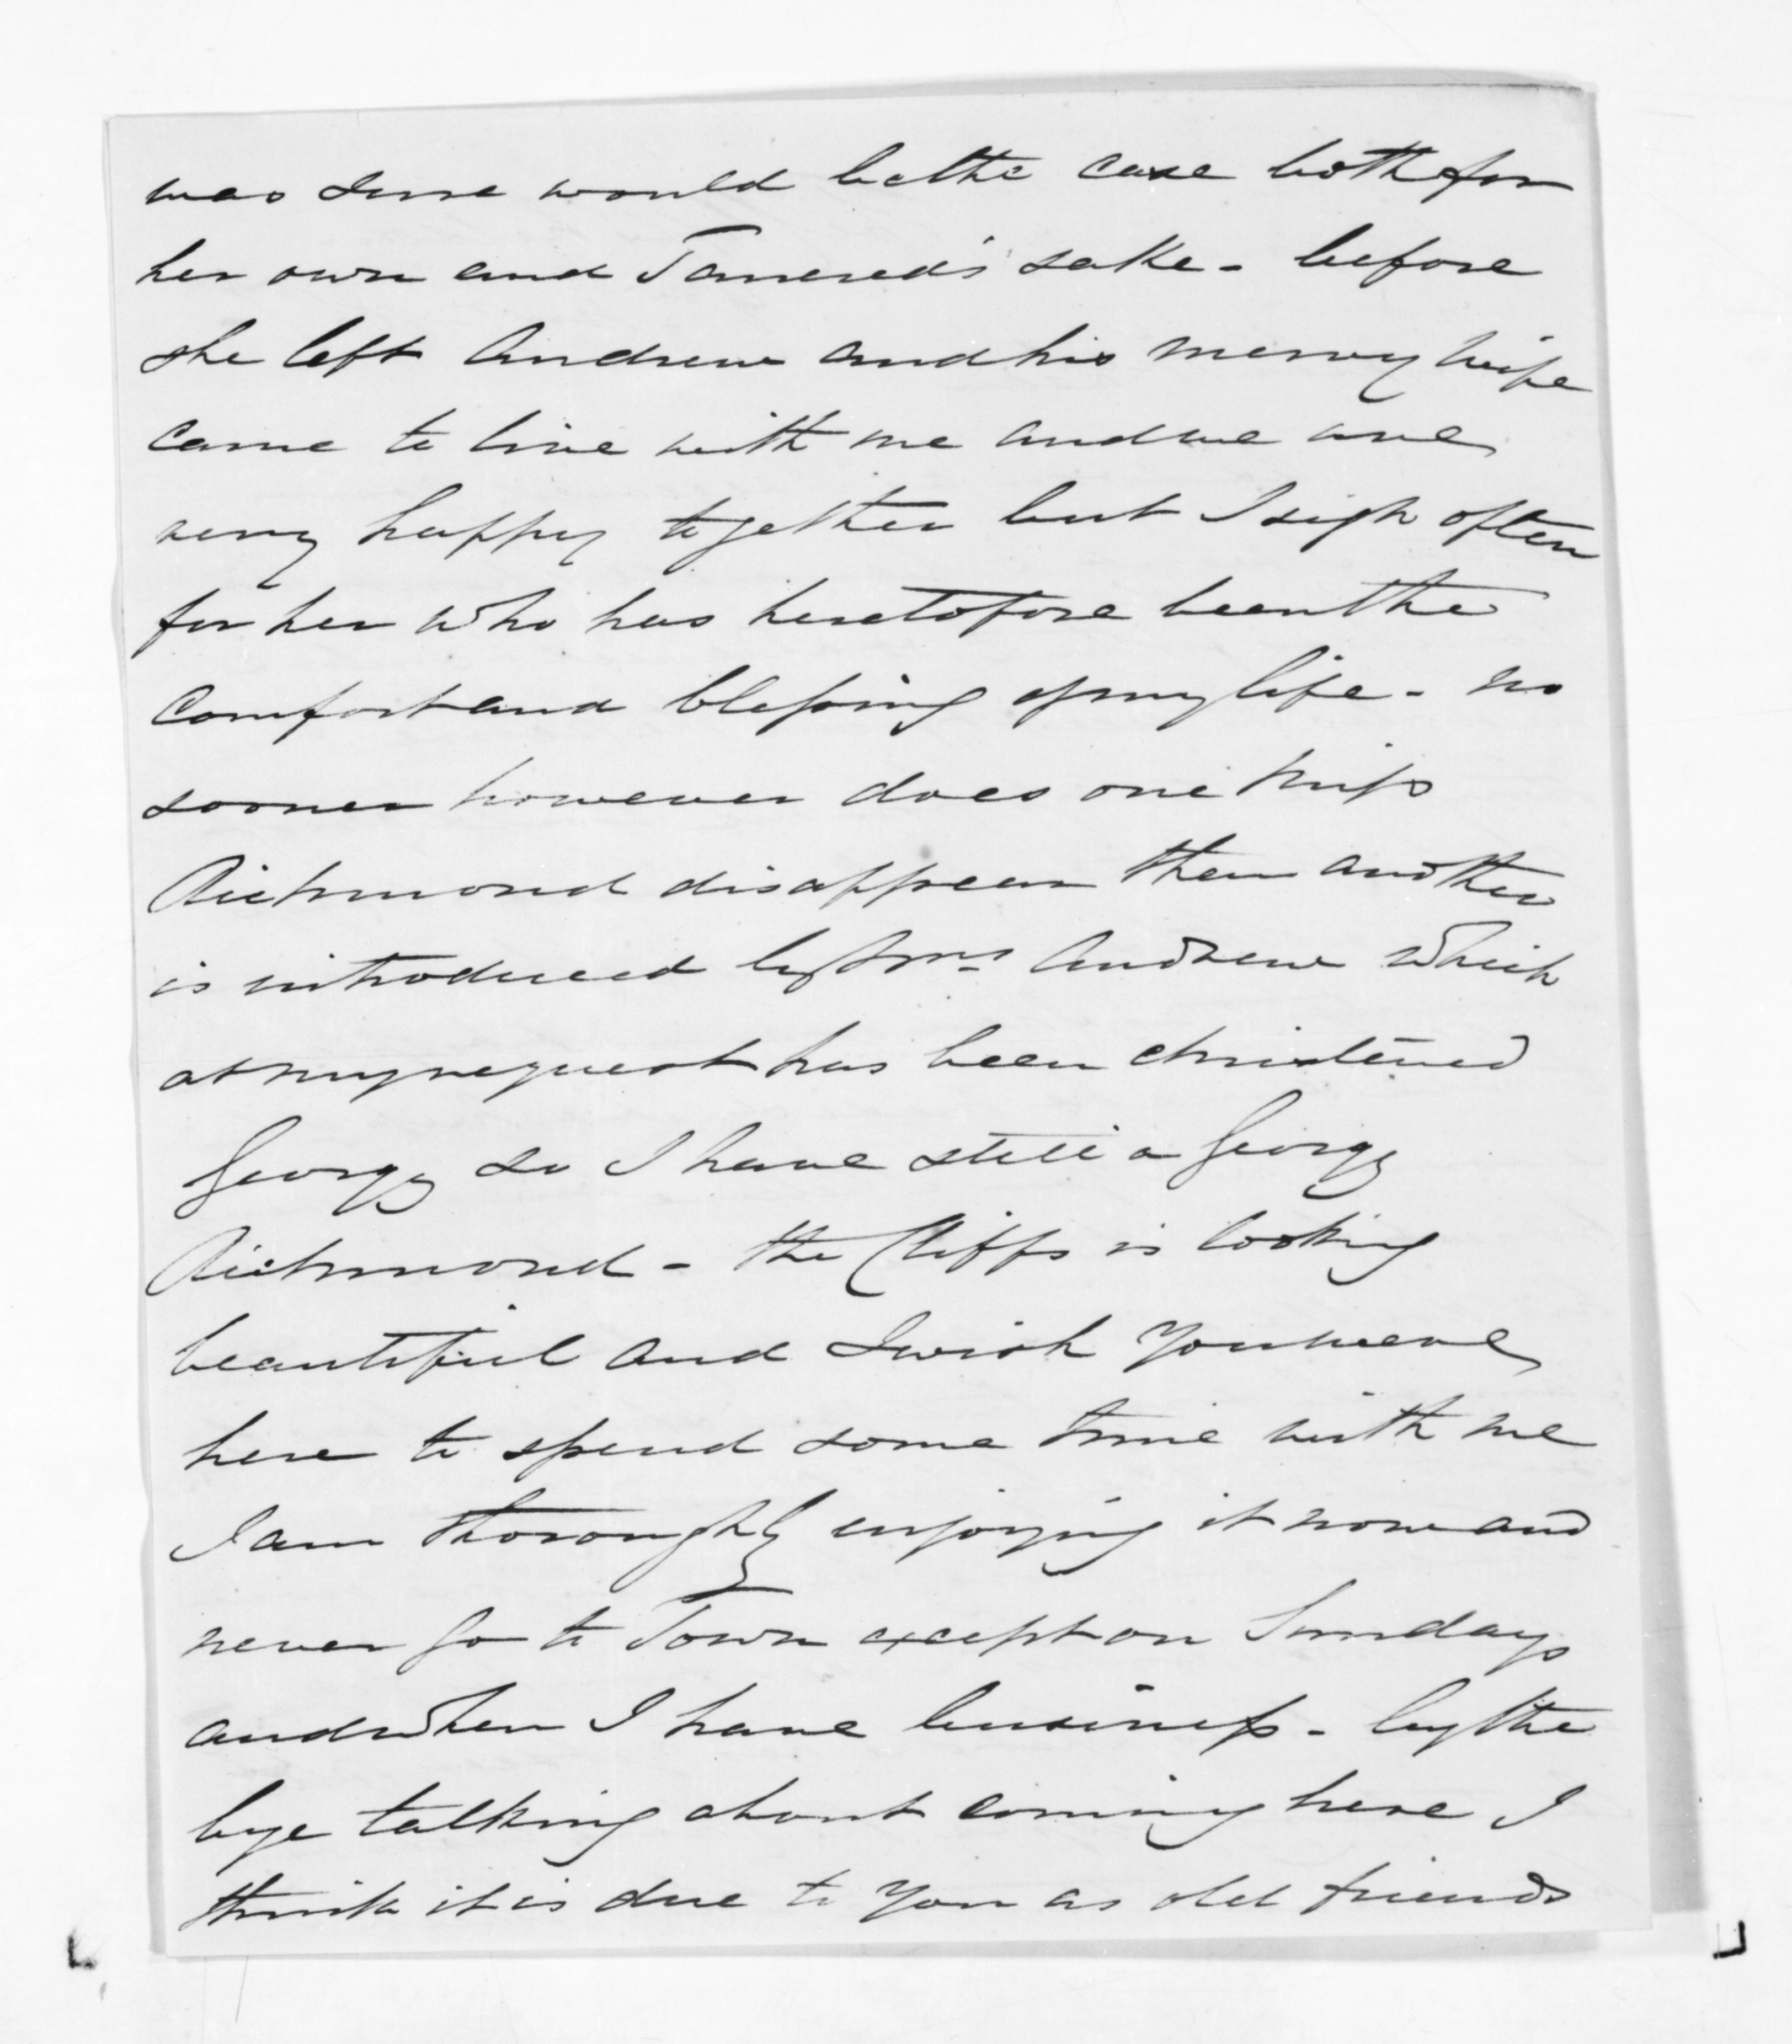 was sure would be the case both for
her own and Tancred's sake - before
she left Andrew and his merry wife
came to live with me and we are
very happy together but I sigh often
for her who has heretofore been the
Comfort and blessing of my life - no
sooner however does one Miss
Richmond disappear than another
is introduced by Mrs Andrew which
at my request has been christened
Georgy so I have still a Georgy
Richmond - the Cliffs is looking
beautiful and I wish you were
here to spend some time with me
I am thoroughly enjoying it now and
never go to Town except on Sundays
and when I have business - by the
bye talking about coming here I
think it is due to you as old friends